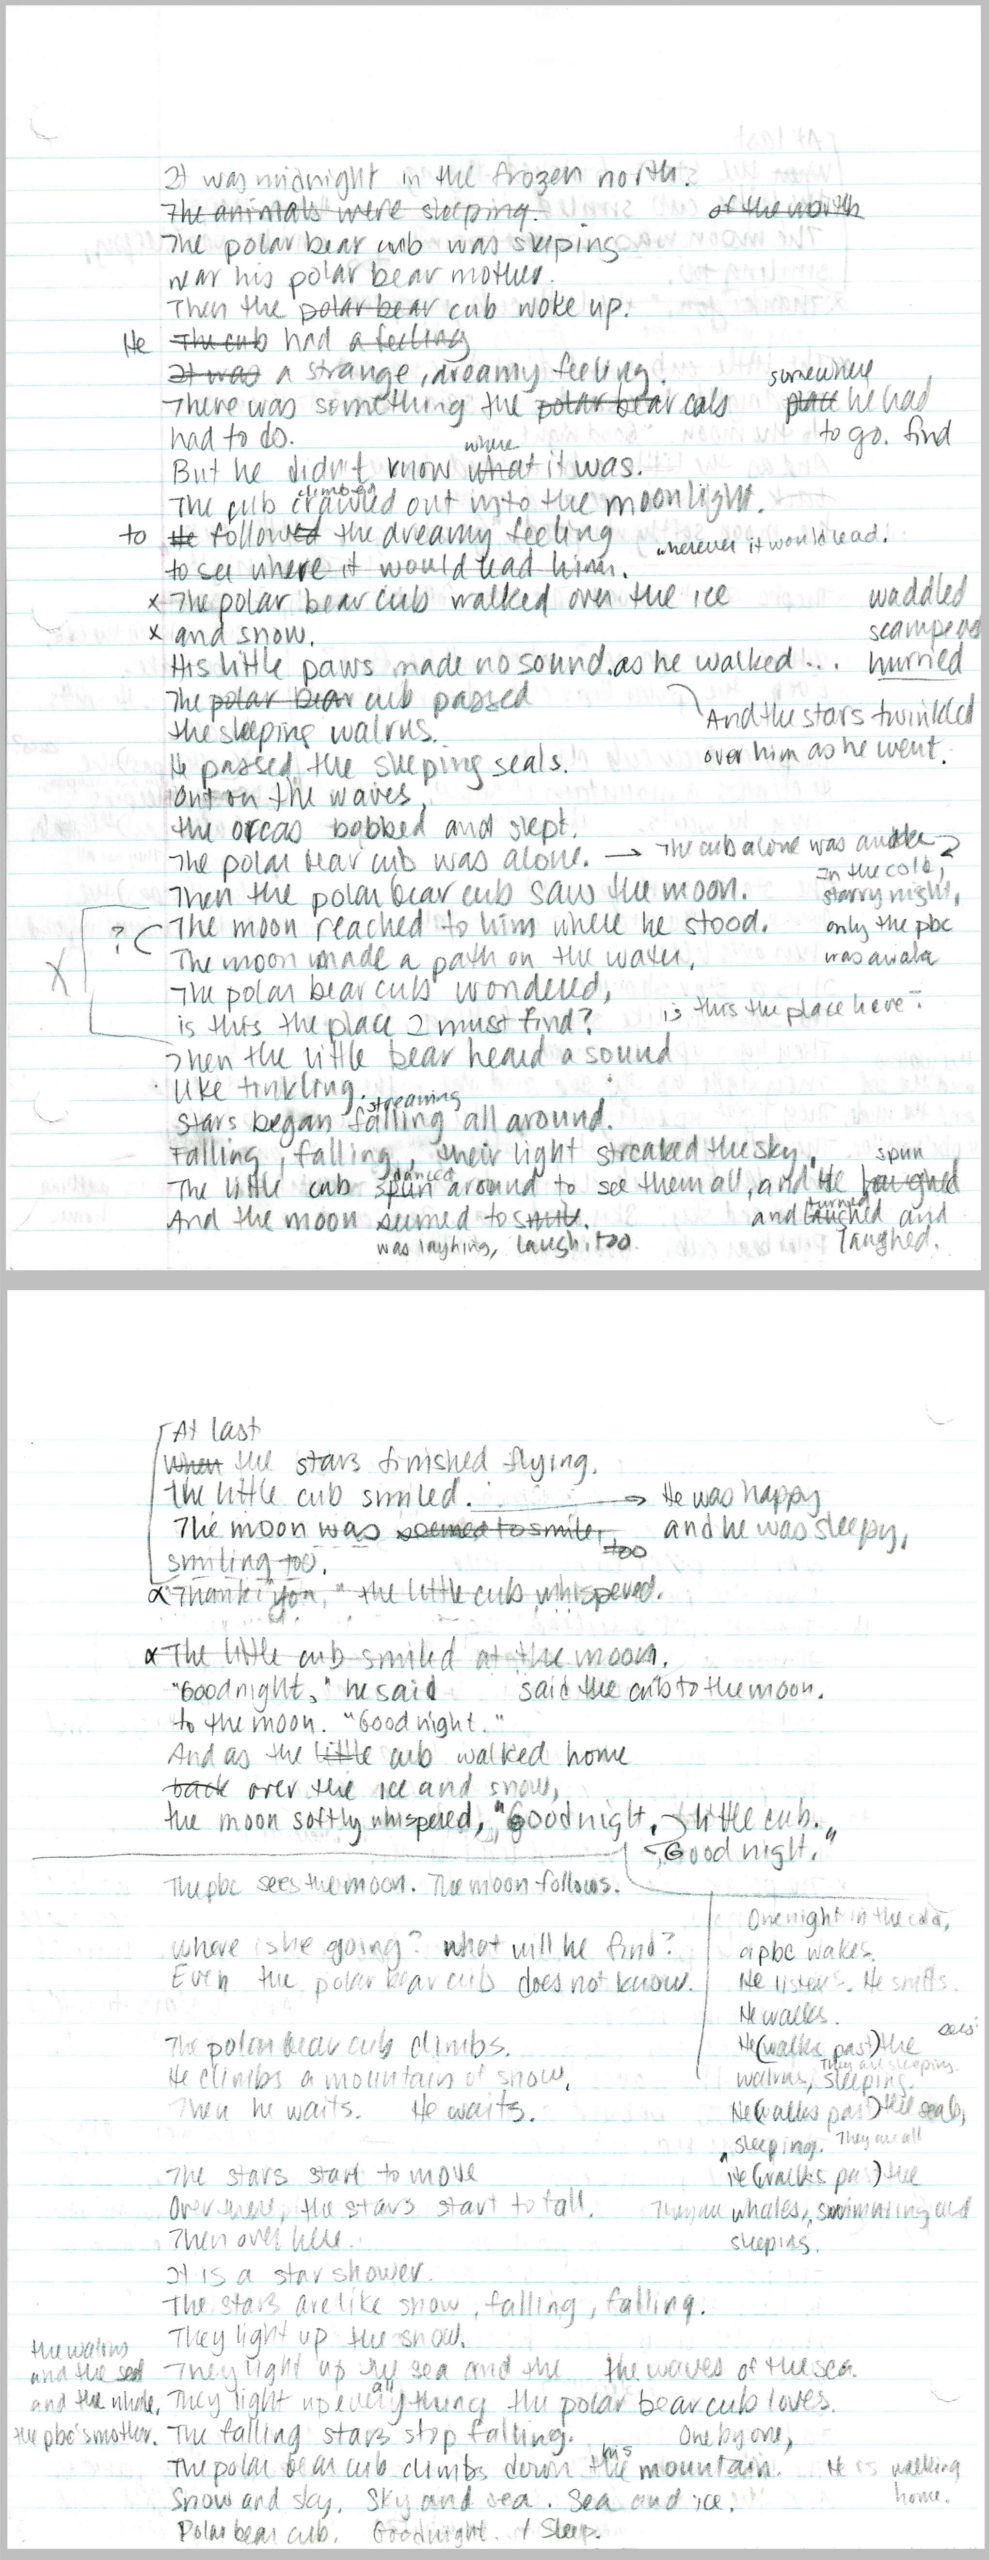 It was midnight in the frozen north.
The animals were sleeping. of the north
The polar bear cub was sleeping
near his polar bear mother.
Then the polar bear cub woke up.
He The cub had a feeling
It was a strange, dreamy feeling.
somewhere
There was something the polar bear cub place he had
had to do. to go. find
where
But he didn't know what it was.
climbed
The cub crawled out into the moonlight.
to He followed the dreamy feeling wherever it would lead.
to see where it would lead him.
x The polar bear cub walked over the ice waddled
x and snow. scampered
His little paws made no sound. as he walked... hurried
The polar bear cub passed And the stars twinkled
the sleeping walrus. over him as he went.
He passed the sleeping seals.
Out on the waves,
the orcas bobbed and slept.
The polar bear cub was alone. → The cub alone was awake
In the cold,
Then the polar bear cub saw the moon. starry night,
? The moon reached to him where he stood. only the pbc
X The moon made a path on the water. was awake
The polar bear cub wondered,
is this the place I must find? is this the place here?
Then the little bear heard a sound
like tinkling.
streaming
Stars began falling all around.
Falling, falling, their light streaked the sky. spun
danced
The little cub spun around to see them all, and He laughed
turned
And the moon seemed to smile. and laughed and
was laughing, laugh, too. laughed.
At last
When the stars finished flying.
The little cub smiled. → He was happy
The moon was seemed to smile, too and he was sleepy,
smiling too.
x "Thank you," the little cub whispered.
x The little cub smiled at the moon.
"Goodnight," he said said the cub to the moon.
to the moon. "Good night."
And as the little cub walked home
back over the ice and snow,
the moon softly whispered, "Goodnight, little cub.
Good night."
The pbc sees the moon. The moon follows.
One night in the cold,
Where is he going? What will he find? a pbc wakes.
Even the polar bear cub does not know. He listens. He sniffs.
He walks.
The polar bear cub climbs. He (walks past) the sees
He climbs a mountain of snow. walrus, sleeping. They are sleeping.
Then he waits. He waits. He (walks past) the seals,
sleeping. They are all
The stars start to move He (walks past) the
Over there, the stars start to fall. They are whales, swimming and
Then over here. sleeping.
It is a star shower.
The stars are like snow, falling, falling.
They light up the snow.
the walrus
and the seal They light up the sea and the the waves of the sea.
and the whale, They light up everything all the polar bear cub loves.
the pbc's mother. The falling stars stop falling. One by one,
The polar bear cub climbs down the his mountain. He is walking
Snow and sky. Sky and sea. Sea and ice. home.
Polar bear cub. Goodnight. + Sleep.